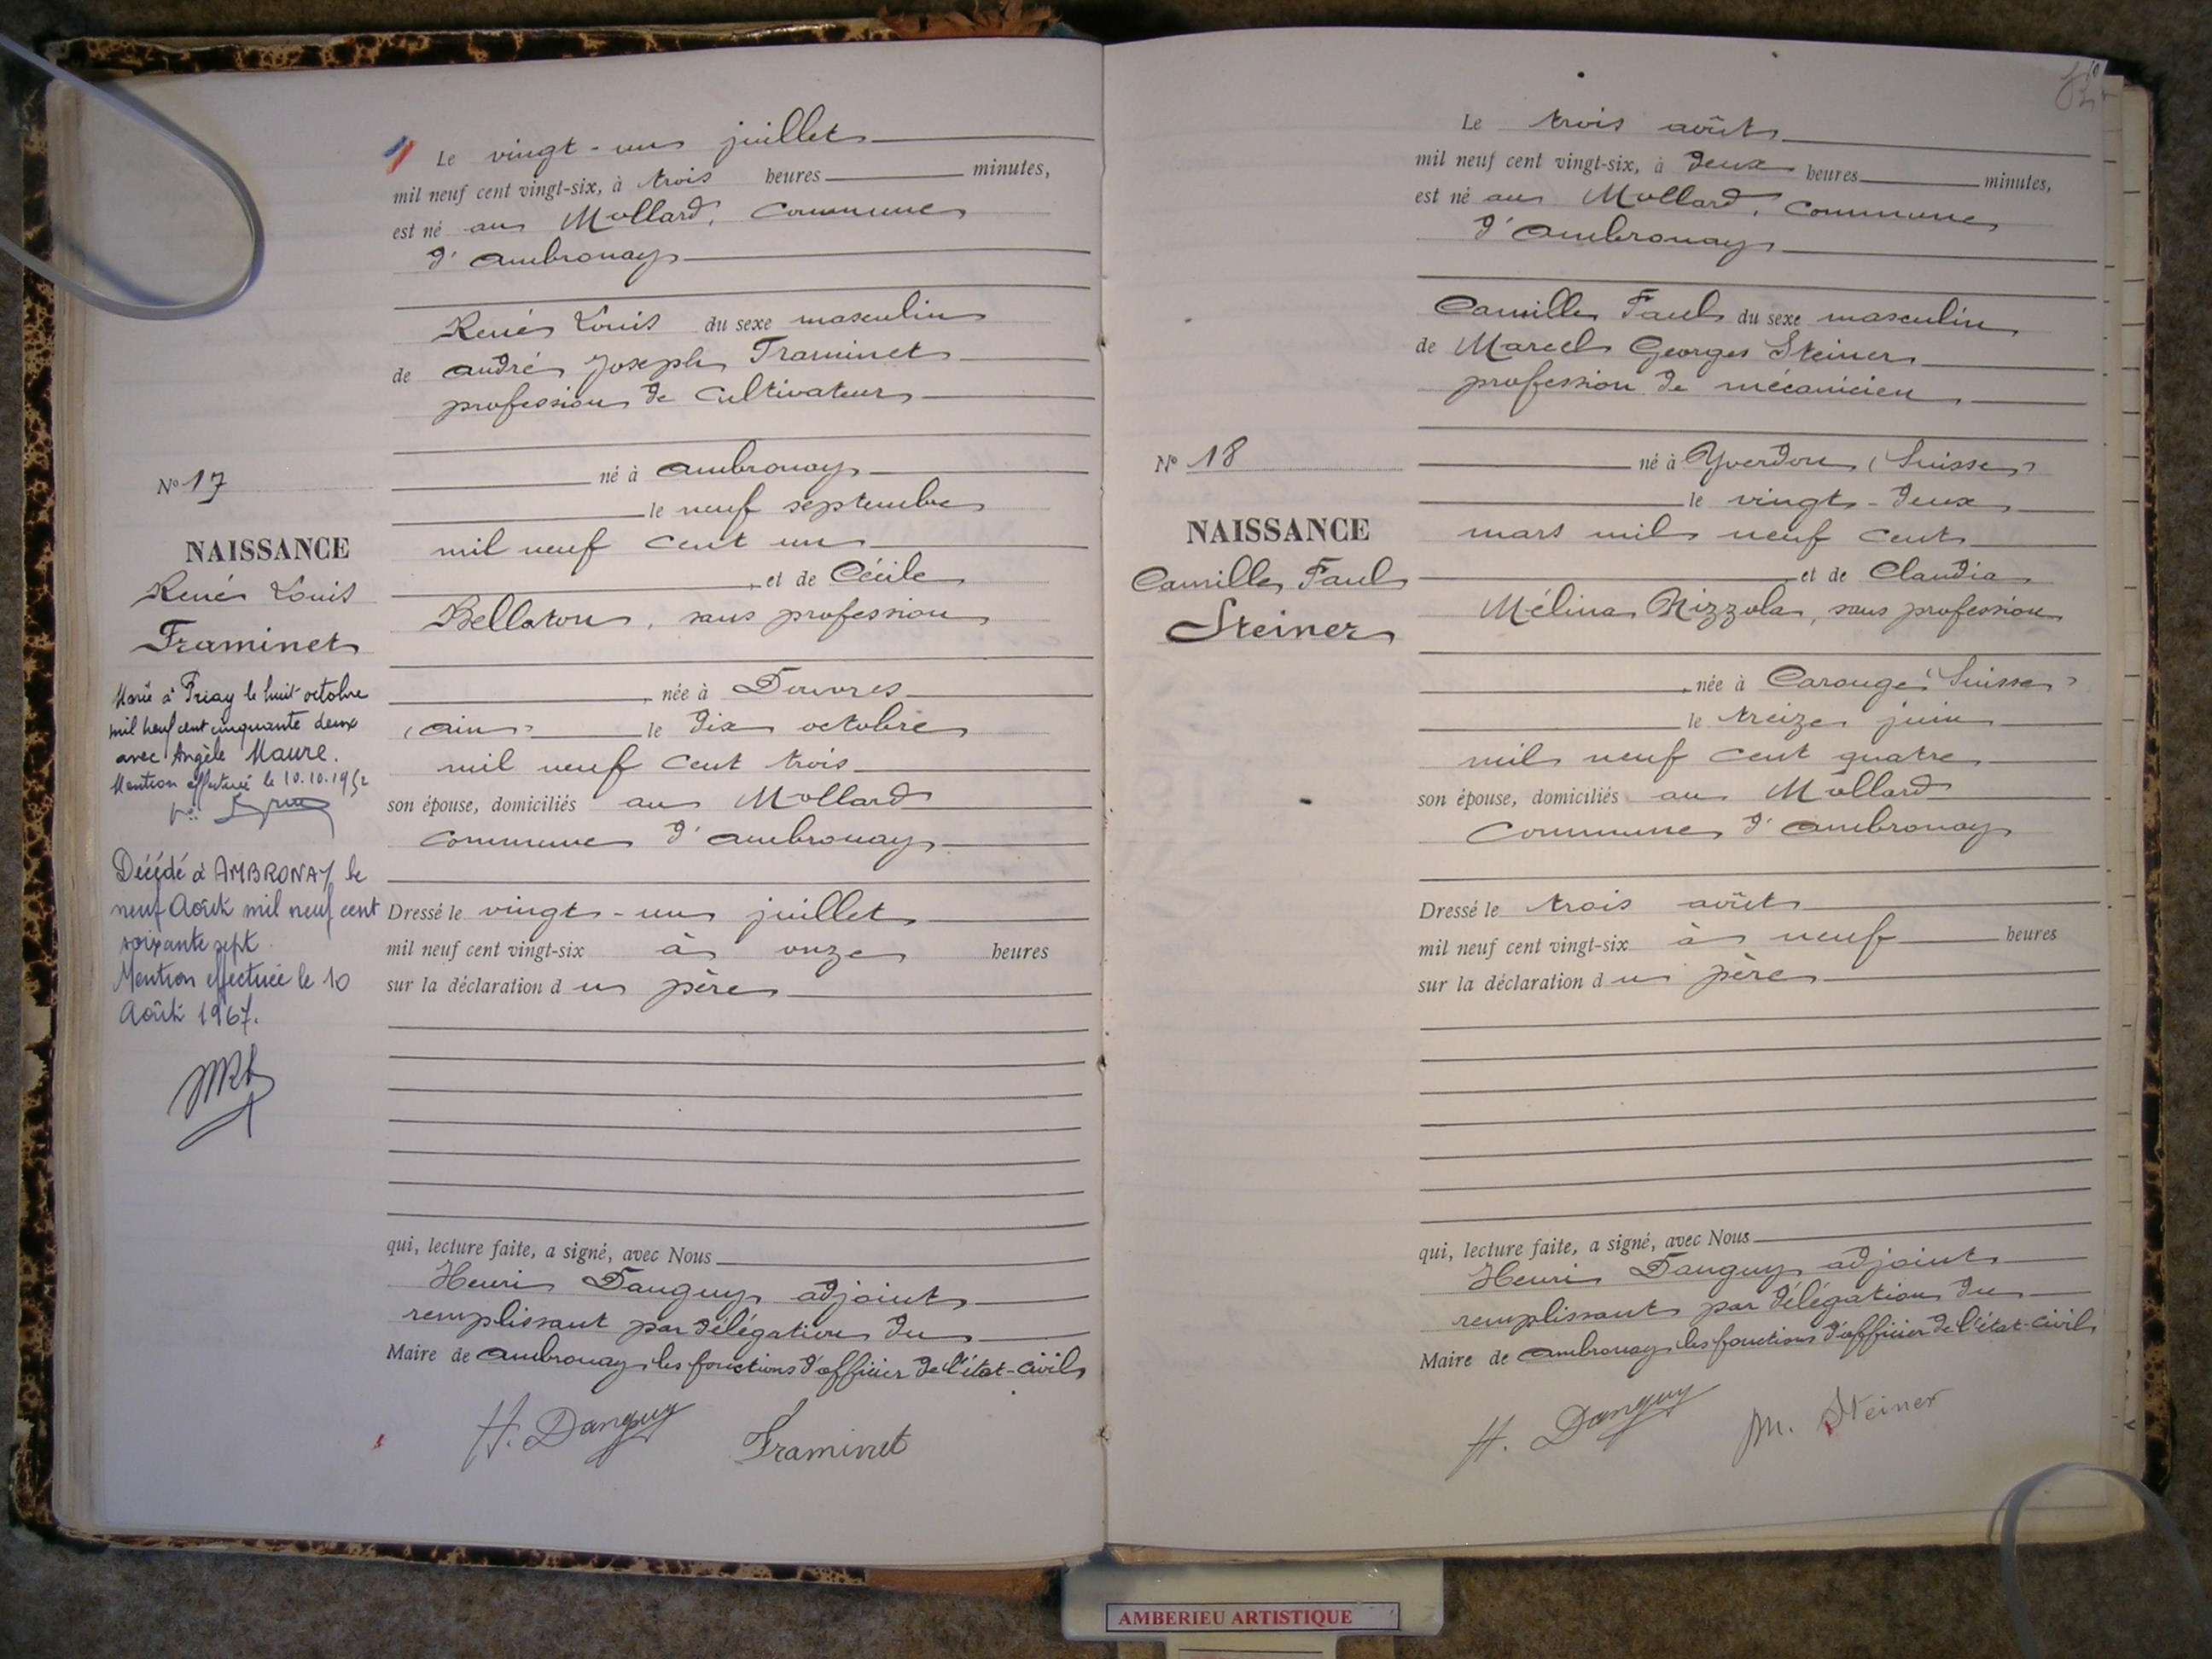 Le vingt-un juillet
mil neuf cent vingt-six, à trois heures minutes,
est né au Mollard, commune
d'Ambronay
René Louis du sexe masculin
de André Joseph Framinet
profession de cultivateur
né à Ambronay
le neuf septembre
mil neuf cent un
, et de Cécile
Bellaton, sans profession
, née à Douvres
(Ain) le dix octobre
mil neuf cent trois
son épouse, domiciliés au Mollard
commune d'Ambronay
Dressé le vingt-un juillet
mil neuf cent vingt-six à onze heures
sur la déclaration du père
qui, lecture faite, a signé, avec Nous
Henri Danguy adjoint
remplissant par délégation du
Maire de Ambronay les fonctions d'officier de l'état-civil
H. Danguy
Framinet
No 17
NAISSANCE
René Louis
Framinet
Marié à Priay le huit octobre
mil neuf cent cinquante deux
avec Angèle Maure.
Mention effectuée le 10.10.1952
Décédé à AMBRONAY le
neuf Août mil neuf cent
soixante sept
Mention effectuée le 10
Août 1967.
Le trois août
mil neuf cent vingt-six, à deux heures minutes,
est né au Mollard, commune
d'Ambronay
Camille Paul du sexe masculin
de Marcel Georges Steiner
profession de mécanicien
né à Yverdon (Suisse)
le vingt-deux
mars mil neuf cent
et de Claudia
Mélina Rizzola, sans profession
, née à Carouge (Suisse)
le treize juin
mil neuf cent quatre
son épouse, domiciliés au Mollard
commune d'Ambronay
Dressé le trois août
mil neuf cent vingt-six à neuf heures
sur la déclaration du père
qui, lecture faite, a signé, avec Nous
Henri Danguy adjoint
remplissant par délégation du
Maire de Ambronay les fonctions d'officier de l'état-civil
H. Danguy
M. Steiner
No 18
NAISSANCE
Camille Paul
Steiner
AMBERIEU ARTISTIQUE